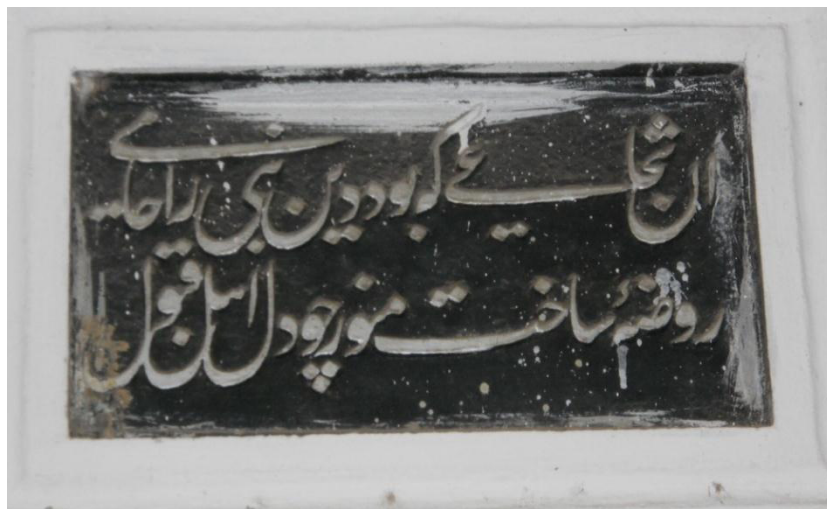 ان شجاعے کو بود دین نبی را حامے
روضۂ ساخت منور چو دل اہل قبول